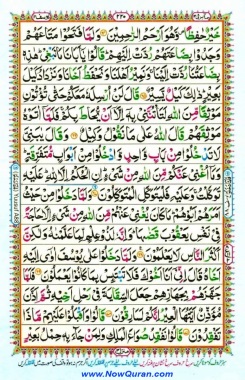 ۲۲۰
خَيْرٌ حٰفِظًا وَّهُوَ اَرْحَمُ الرّٰحِمِيْنَ وَلَمَّا فَتَحُوْا مَتَاعَهُمْ
وَجَدُوْا بِضَاعَتَهُمْ رُدَّتْ اِلَيْهِمْ قَالُوْا يٰۤاَبَانَا مَا نَبْغِيْ هٰذِهٖ
بِضَاعَتُنَا رُدَّتْ اِلَيْنَا وَنَمِيْرُ اَهْلَنَا وَنَحْفَظُ اَخَانَا وَنَزْدَادُ كَيْلَ
بَعِيْرٍ ذٰلِكَ كَيْلٌ يَّسِيْرٌ قَالَ لَنْ اُرْسِلَهٗ مَعَكُمْ حَتّٰى تُؤْتُوْنِ
مَوْثِقًا مِّنَ اللّٰهِ لَتَاْتُنَّنِيْ بِهٖۤ اِلَّاۤ اَنْ يُّحَاطَ بِكُمْ فَلَمَّاۤ اٰتَوْهُ
مَوْثِقَهُمْ قَالَ اللّٰهُ عَلٰى مَا نَقُوْلُ وَكِيْلٌ وَقَالَ يٰبَنِيَّ
لَا تَدْخُلُوْا مِنْۢ بَابٍ وَّاحِدٍ وَّادْخُلُوْا مِنْ اَبْوَابٍ مُّتَفَرِّقَةٍ
وَمَاۤ اُغْنِيْ عَنْكُمْ مِّنَ اللّٰهِ مِنْ شَيْءٍ اِنِ الْحُكْمُ اِلَّا لِلّٰهِ عَلَيْهِ
تَوَكَّلْتُ وَعَلَيْهِ فَلْيَتَوَكَّلِ الْمُتَوَكِّلُوْنَ وَلَمَّا دَخَلُوْا مِنْ حَيْثُ
اَمَرَهُمْ اَبُوْهُمْ مَا كَانَ يُغْنِيْ عَنْهُمْ مِّنَ اللّٰهِ مِنْ شَيْءٍ اِلَّا حَاجَةً
فِيْ نَفْسِ يَعْقُوْبَ قَضٰىهَا وَاِنَّهٗ لَذُوْ عِلْمٍ لِّمَا عَلَّمْنٰهُ وَلٰكِنَّ
اَكْثَرَ النَّاسِ لَا يَعْلَمُوْنَ وَلَمَّا دَخَلُوْا عَلٰى يُوْسُفَ اٰوٰۤى اِلَيْهِ
اَخَاهُ قَالَ اِنِّيْۤ اَنَا اَخُوْكَ فَلَا تَبْتَئِسْ بِمَا كَانُوْا يَعْمَلُوْنَ فَلَمَّا
جَهَّزَهُمْ بِجَهَازِهِمْ جَعَلَ السِّقَايَةَ فِيْ رَحْلِ اَخِيْهِ ثُمَّ اَذَّنَ
مُؤَذِّنٌ اَيَّتُهَا الْعِيْرُ اِنَّكُمْ لَسٰرِقُوْنَ قَالُوْا وَاَقْبَلُوْا عَلَيْهِمْ مَّاذَا
تَفْقِدُوْنَ قَالُوْا نَفْقِدُ صُوَاعَ الْمَلِكِ وَلِمَنْ جَآءَ بِهٖ حِمْلُ بَعِيْرٍ
www.NowQuran.com